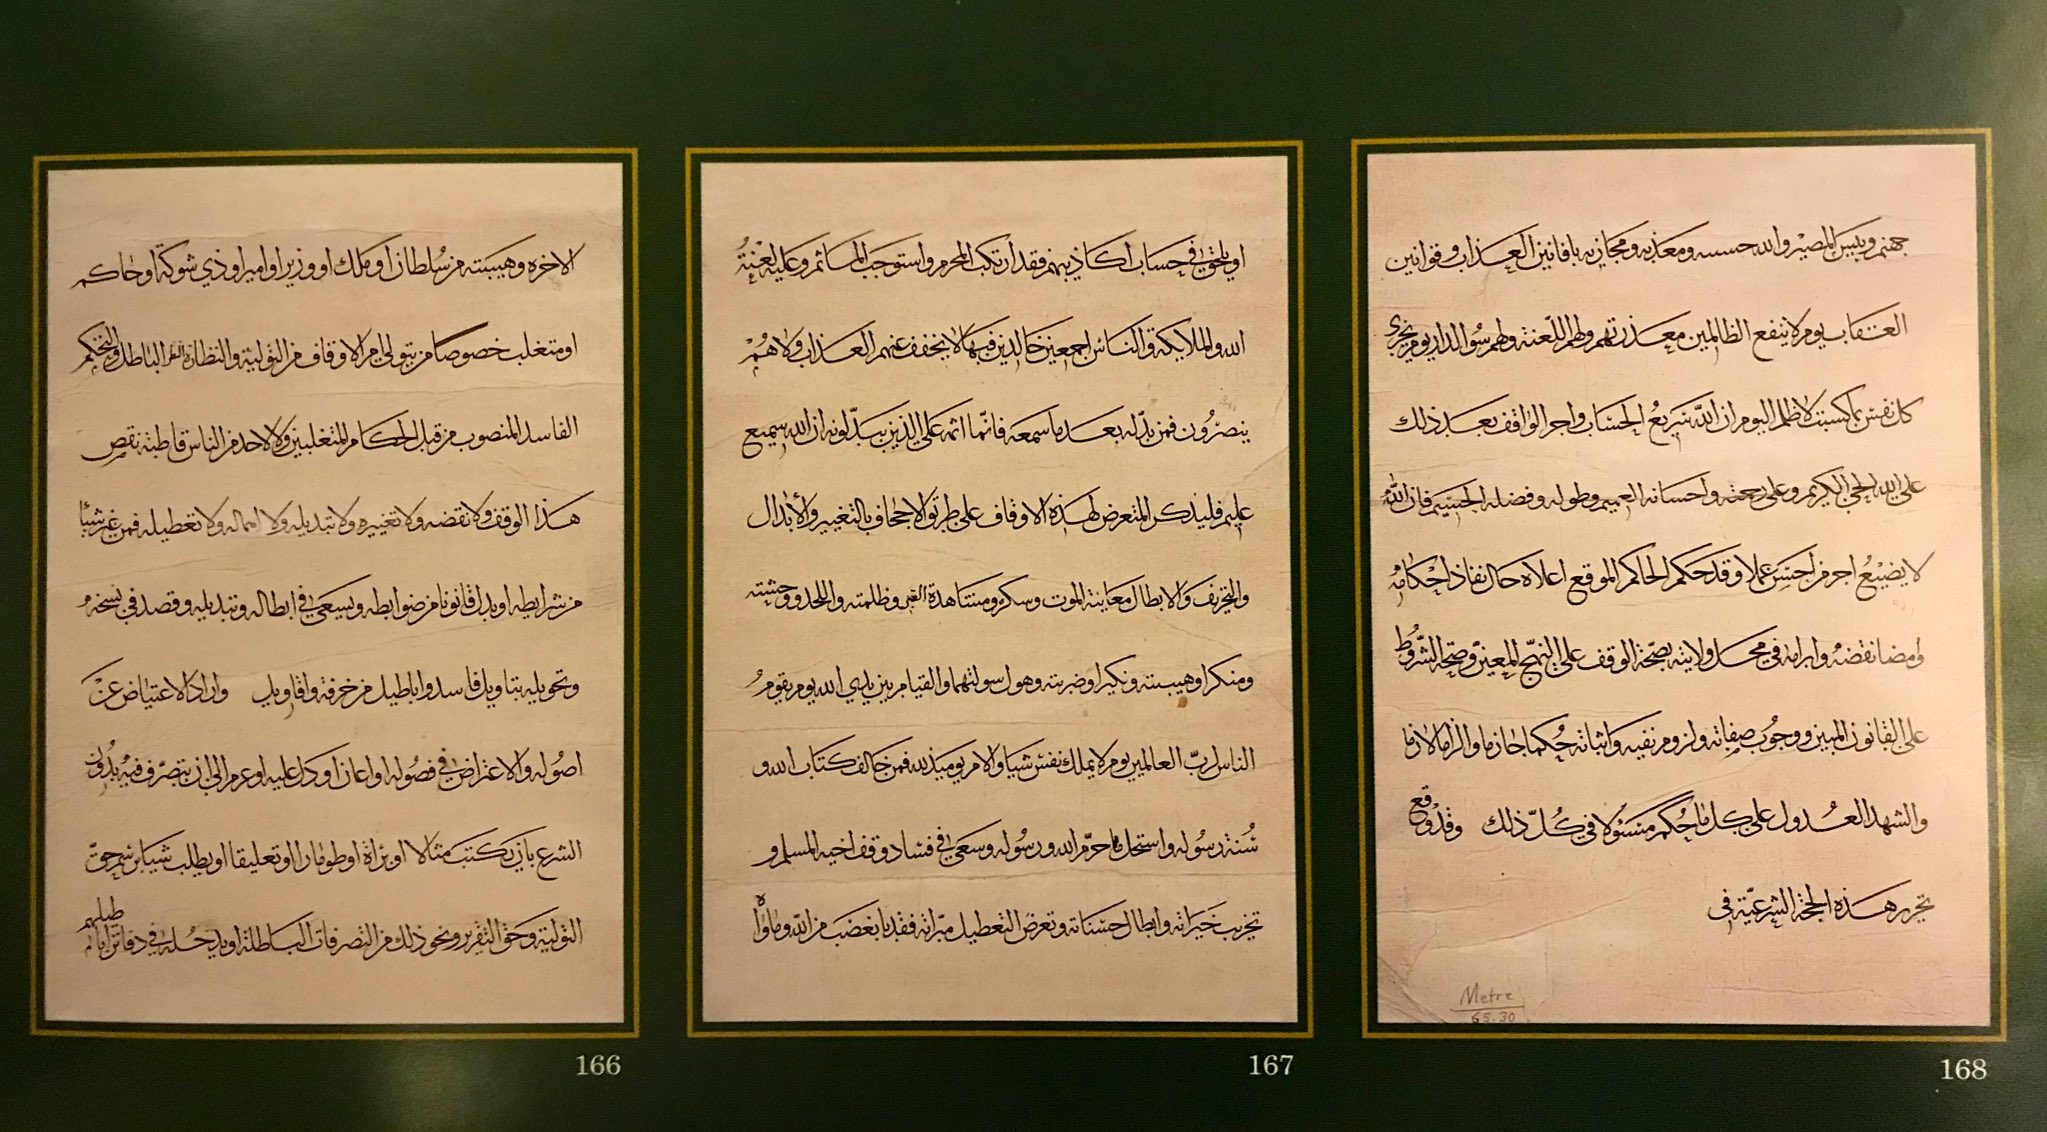 الاخرة وهيبته من سلطان او ملك او وزير او امير او ذي شوكة او حاكم
او متغلب خصوصا من يتولى من الاوقاف من التولية والنظارة الباطل والتحكم
الفاسد المنصوب من قبل الحكام المتغلبين ولا لاحد من الناس قاطبة نقص
هذا الوقف ولا نقضه ولا تغييره ولا تبديله ولا اهماله ولا تعطيله فمن غير شيئا
من شرايطه او بدل قانونا من ضوابطه ويسعى في ابطاله وتبديله وقصد في نسخه
وتحويله بتاويل فاسد واباطيل مزخرفة واقاويل واراد الاعتياض عن
اصوله والاعتراض في فصوله او اعان او دل عليه او عزم الى ان يتصرف فيه بدون
الشرع بان يكتب مثالا او براة او طومارا او تعليقا او يطلب شيا برسم حق
التولية وحق التقرير ونحو ذلك من التصرفات الباطلة او يدخله في دفاتر اباطيلهم
166
او يلحق في حساب اكاذيبهم فقد ارتكب المحرم واستوجب الماثم وعليه لعنة
الله والملايكة والناس اجمعين خالدين فيها لا يخفف عنهم العذاب ولا هم
ينصرون فمن بدله بعد ما سمعه فانما اثمه على الذين يبدلونه ان الله سميع
عليم فليذكر المتعرض لهذه الاوقاف على طريق الاجحاف بالتغيير والابدال
والتحريف والابطال معاينة الموت وسكره ومشاهدة القبر وظلمته واللحد ووحشته
ومنكرا وهيبته ونكيرا وضربته وهول سولتهما والقيام بين يدي الله يوم يقوم
الناس لرب العالمين يوم لا يملك نفس شيا والامر يوميذ لله فمن خالف كتاب الله و
سنة رسوله واستحل ما حرم الله ورسوله وسعى في فساد وقف اخيه المسلم و
تخريب خيراته وابطال حسناته وتعرض لتعطيل مبراته فقد با بغضب من الله وماواه
167
جهنم وبيس المصير والله حسيبه ومعذبه ومجازيه بافانين العذاب وقوانين
العقاب يوم لا ينفع الظالمين معذرتهم ولهم اللعنة ولهم سو الدار يوم يجزى
كل نفس بما كسبت لا ظلم اليوم ان الله سريع الحساب واجر الواقف بعد ذلك
على الله الحي الكريم وعلى رحمته واحسانه العميم وطوله وفضله الجسيم فان الله
لا يضيع اجر من احسن عملا وقد حكم الحاكم الموقع اعلاه حال نفاذ احكامه
وامضا نقضه وابرامه في محل ولايته بصحة الوقف على النهج المعين وصحة الشروط
على القانون المبين ووجوب صفاته ولزوم نفيه واثباته حكما جازما والزاما لازما
واشهد العدول على كل ما حكم مسئولا في كل ذلك وقد وقع
تحرير هذه الحجة الشرعية في
Metre
65.30
168